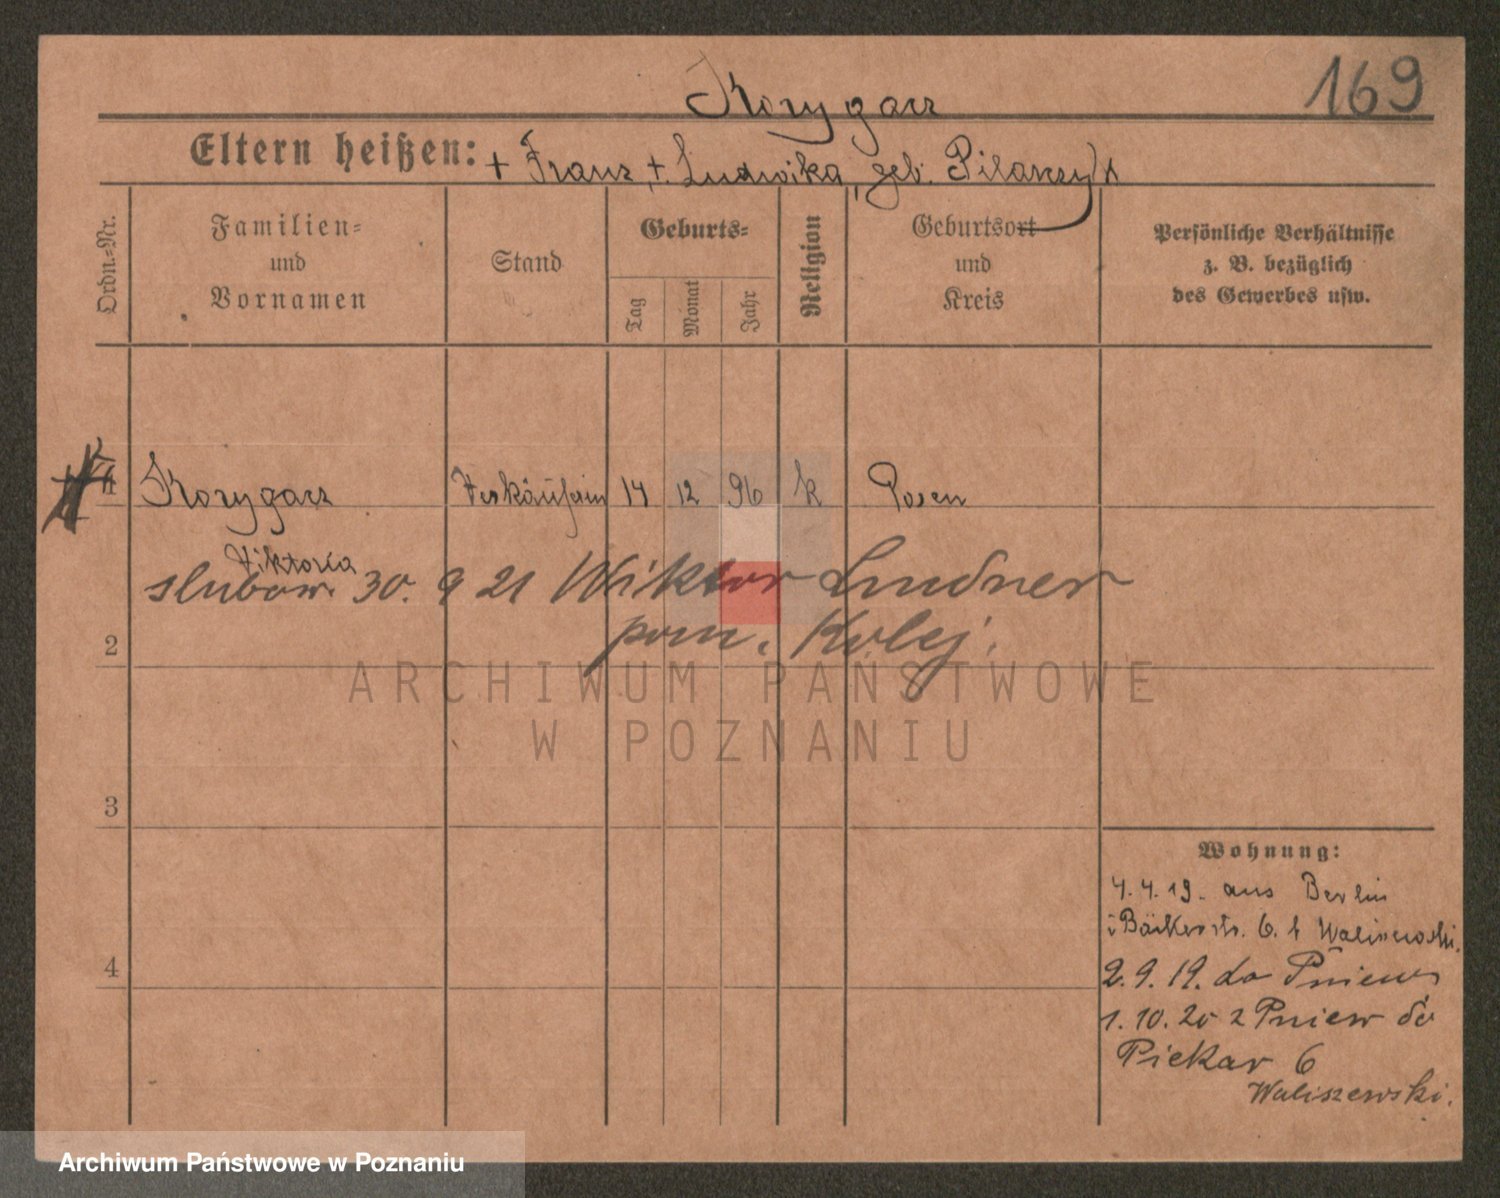 169
Korygacz
Eltern heißen: + Franz, +. Ludwika, geb. Pilarczyk
Ordn.-Nr.
Familien- und Vornamen
Stand
Geburts-
Tag
Monat
Jahr
Religion
Geburtsort und Kreis
Persönliche Verhältnisse
z. B. bezüglich
des Gewerbes usw.
Korygacz Verkäuferin 14 12 96 k Posen
Viktoria
slubow. 30. 9 21 Wiktor Lindner
pom. Kolej.
2
3
4
Wohnung:
4.4.19. aus Berlin
Bäckerstr. 6. b Waliszewski.
2.9.19. do Pniew
1.10.20 z Pniew do
Piekar 6
Waliszewski.
ARCHIWUM PAŃSTWOWE
W POZNANIU
Archiwum Państwowe w Poznaniu